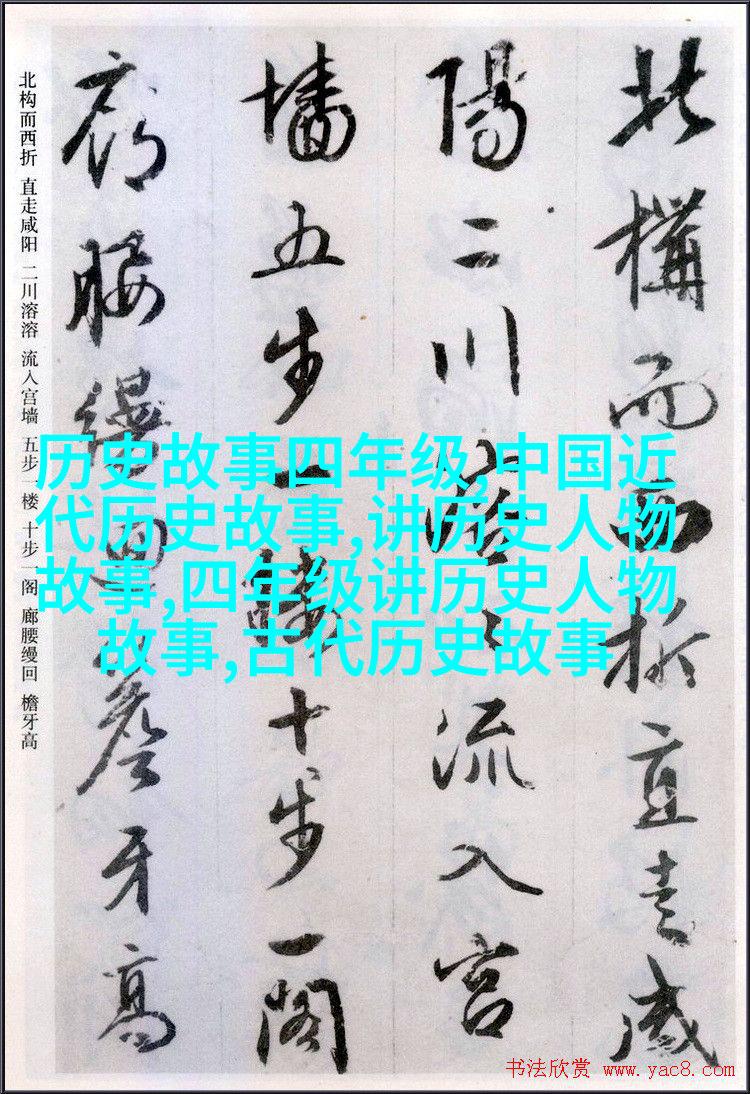 北構而西折直走咸
陽二川溶〻流入宫
墻五步一樓十步一閣
廊腰缦回簷牙高
北构而西折 直走咸阳 二川溶溶 流入宫墙 五步一楼 十步一阁 廊腰缦回 檐牙高
历史故事四年级,中国近
代历史故事,讲历史人物
故事,四年级讲历史人物
故事,古代历史故事
书法欣赏 www.yac8.com